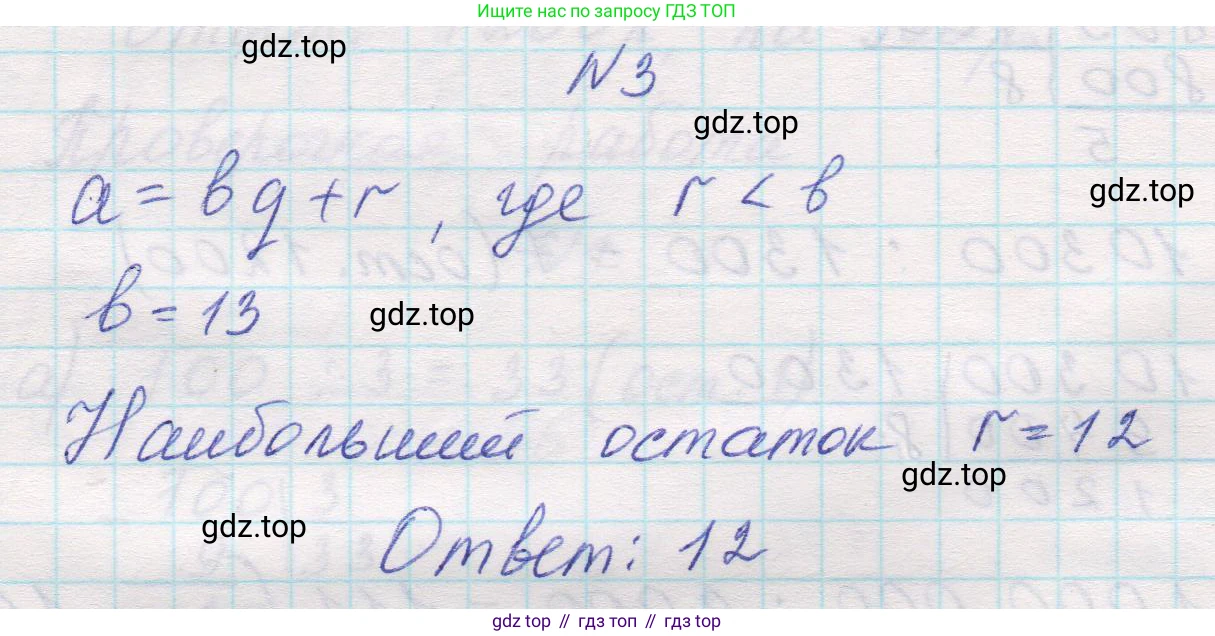 Ищите нас по запросу ГДЗ ТОП
gdz.top
N 3
gdz.top
a = bq + r, где r < b
gdz.top
b = 13
gdz.top
Наибольший остаток r = 12
gdz.top
gdz.top
Ответ: 12
gdz top // гдз топ // гдз top